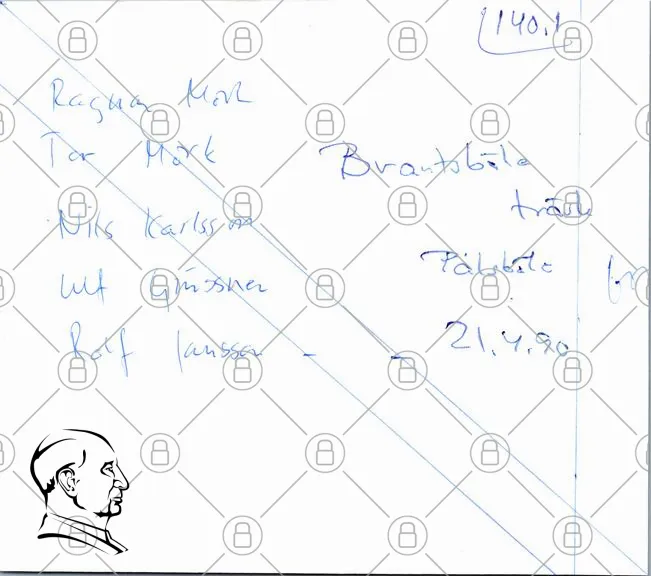 140.1
Ragnar Mörk
Tor Mörk
Brantsböle
träsk
Nils Karlsson
Pålsböle
Ulf
Rolf Jansson
21.4.90